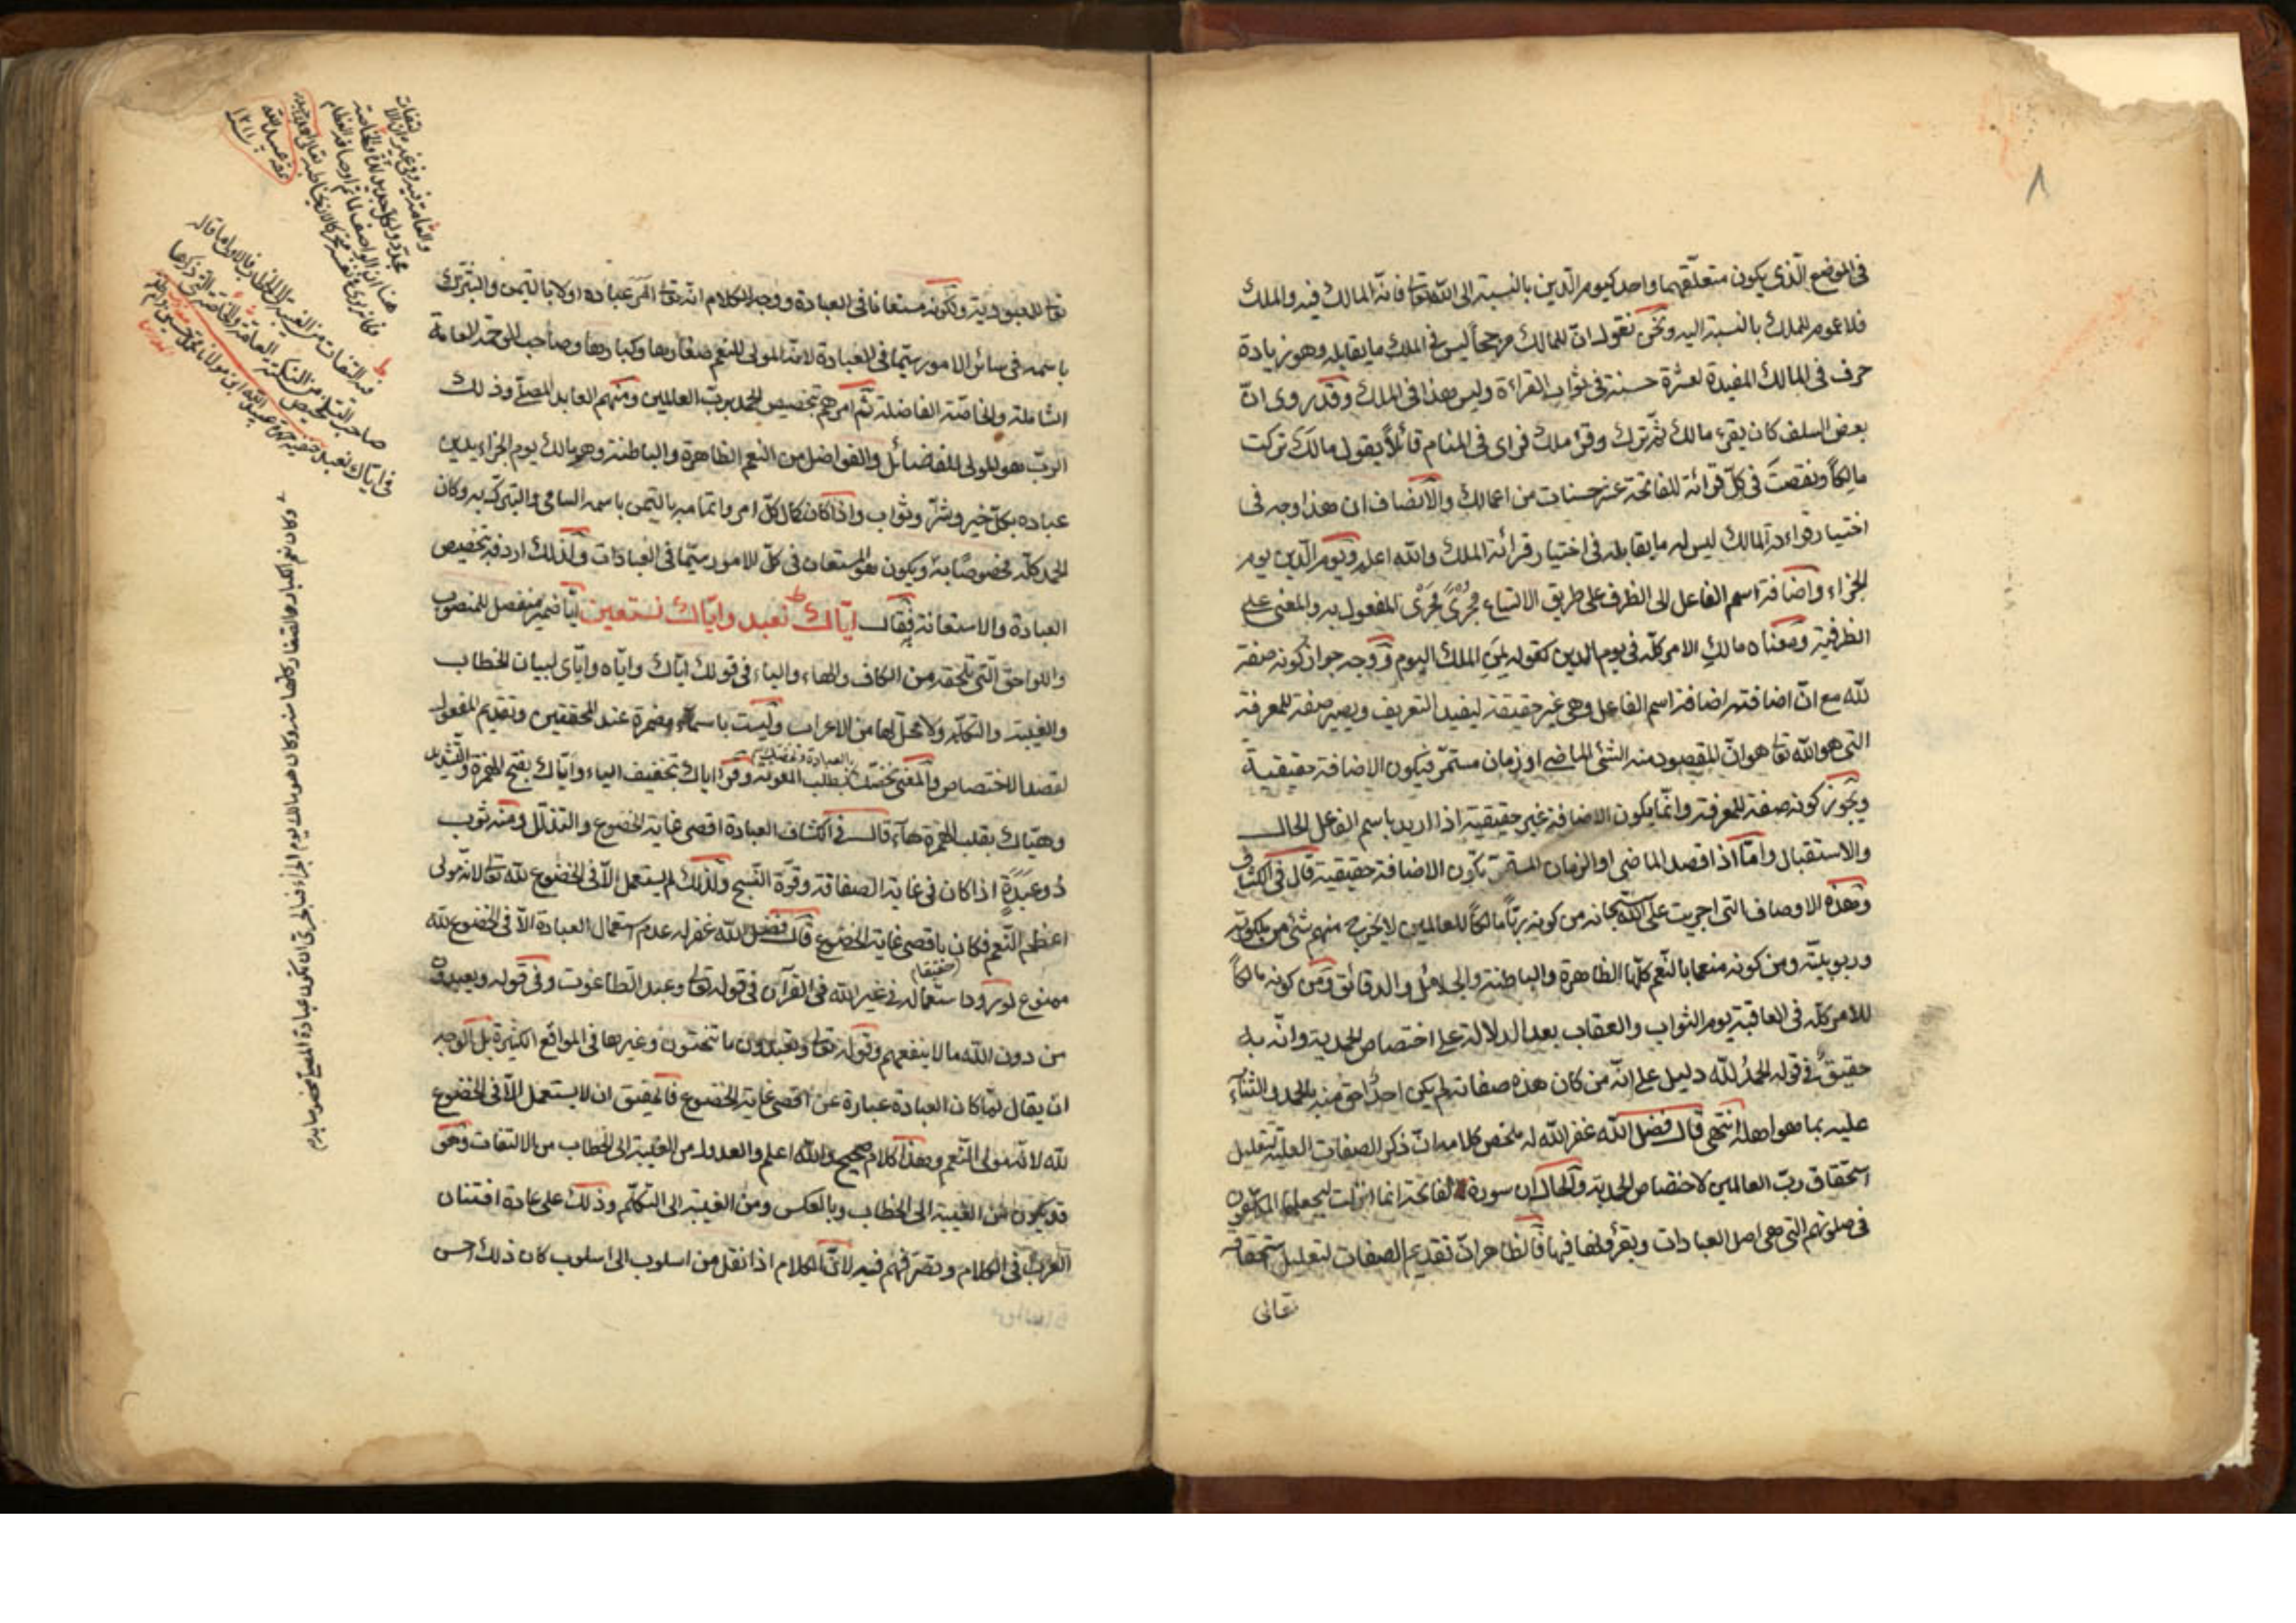 ٨
في الموضع الّذي يكون متعلّقهما واحد كيوم الدّين بالنسبة الى الله تعا فانّه المالك فيه والملك
فلا عموم للملك بالنسبة اليه ونحن نقول انّ للمالك مرجحاً ليس في الملك ما يقابله وهو زيادة
حرف في المالك المفيدة لعشرة حسنة في ثواب القراءة وليس هذا في الملك وقد روى انّ
بعض السلف كان يقرء مالك ثمّ ترك وقرء ملك فراى في المنام قائلاً يقول مالك تركت
مالكاً ونقصت في كلّ قرائة للفاتحة عشر حسنات من اعمالك والانصاف ان هذا وجه في
اختيار قراءة المالك ليس له ما يقابله في اختيار قرائة الملك والله اعلم ويوم الدّين يوم
الجزاء واضافة اسم الفاعل الى الظرف على طريق الاتساع مُجرًى مَجرَى المفعول به والمعنى على
الظرفية ومعناه مالك الامر كلّه في يوم الدين كقوله لمن الملك اليوم ووجه جواز كونه صفة
لله مع انّ اضافته اضافة اسم الفاعل وهي غير حقيقة ليفيد التعريف ويصير صفة للمعرفة
التي هو الله تعا هو انّ المقصود منه الشئ الماضي او زمان مستمرّ فيكون الاضافة حقيقية
ويجوز كونه صفة للمعرفة وانّما يكون الاضافة غير حقيقية اذا اريد باسم الفاعل الحال
والاستقبال وامّا اذا قصد الماضي او الزمان المستمرّ تكون الاضافة حقيقية قال في الكشاف
وهذه الاوصاف التي اجريت على الله سبحانه من كونه ربّاً مالكاً للعالمين لا يخرج منهم شئ من ملكوته
وربوبيته ومن كونه منعما بالنّعم كلّها الظاهرة والباطنة والجلائل والدقائق ومن كونه مالكاً
للامر كلّه في العاقبة يوم الثواب والعقاب بعد الدلالة على اختصاص الحمد به وانّه به
حقيقٌ في قوله الحمدُ لله دليل على انّه من كان هذه صفاته لم يكن احد احق منه بالحمد والثناء
عليه بما هو اهله انتهى قال فضل الله غفر الله له ملخص كلامه انّ ذكر الصفات العلية لتعليل
استحقاق ربّ العالمين لاختصاص الحمد به والحال ان سورة الفاتحة انما انزلت ليجعلها المكلّفون
في صلوتهم التي هي اصل العبادات ويقرؤنها فيها فالظاهر انّ تقديم الصفات لتعليل استحقاقه
تعالى
تعا للعبودية ولكونه مستعانا في العبادة ووجه الكلام انّه تعا امر عباده اولا بالتيمن والتبرّك
باسمه في سائر الامور سيّما في العبادة لانه المولى للنعم صغارها وكبارها وصاحب الرحمة العامة
الشاملة والخاصّة الفاضلة ثم امرهم بتخصيص الحمد بربّ العالمين ومنهم العابد المصلّي وذلك
الربّ هو المولى للفضائل والفواضل من النعم الظاهرة والباطنة وهو مالك يوم الجزاء يدين
عباده بكلّ خير وشرّ وثواب واذا كان كمال كلّ امر واتمامه بالتيمن باسمه السامي والتبرّك به وكان
الحمد كلّه مخصوصًا به ويكون هو المستعان في كلّ الامور سيّما في العبادات ولذلك اردفه بتخصيص
العبادة والاستعانة فقال ايّاك نعبد وايّاك نستعين ايّا ضمير منفصل للمنصوب
واللواحق التي تلحقه من الكاف والهاء والياء في قولك ايّاك وايّاه وايّاى لبيان الخطاب
والغيبة والتكلّم ولا محلّ لها من الاعراب وليست باسماء مضمرة عند المحققين وتقديم المفعول
بالعبادة ونخصّك
لقصد الاختصاص والمعنى نخصّك بطلب المعونة وقرئ اياك بتخفيف الياء وايّاك بفتح الهمزة والتشديد
وهيّاك بقلب الهمزة هاء قال في الكشاف العبادة اقصى غاية الخضوع والتذلّل ومنه ثوب
ذو عَبَدَةٍ اذا كان في غاية الصفاقة وقوّة النّسج ولذلك لم يستعمل الاّ في الخضوع لله تعا لانه مولى
اعظم النّعم فكان باقصى غاية الخضوع قال فضل الله غفر له عدم استعمال العبادة الاّ في الخضوع لله
حقيقا
ممنوع لورود استعماله في غير الله في القرآن في قوله تعا وعبد الطاغوت وفي قوله ويعبدون
من دون الله ما لا ينفعهم وقوله تعا وتعبدون ما تنحتون وغيرها في المواقع الكثيرة بل الوجه
ان يقال لمّا كان العبادة عبارة عن اقصى غاية الخضوع فالحقيق ان لا يستعمل الاّ في الخضوع
لله لانّه مولى النعم وهذا كلام صحيح والله اعلم والعدول من الغيبة الى الخطاب من الالتفات وهي
قد يكون من الغيبة الى الخطاب وبالعكس ومن الغيبة الى التكلّم وذلك على عادة افتنان
العرب في الكلام وتصرّفهم فيه لانّ الكلام اذا نقل من اسلوب الى اسلوب كان ذلك احسن
فيه التفات من الغيبة الى الخطاب
في اياك نعبد
وكان نعم الكبار والصغار كلها منه وكان هو مالك يوم الجزاء فبالحري ان تكون عبادة المصلي مخصوصا به